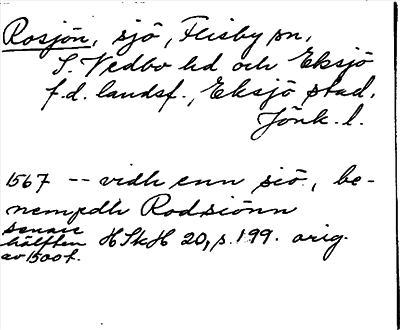 Rosjön, sjö, Flisby sn,
S. Vedbo hd och Eksjö
f.d. landsf., Eksjö stad.
Jönk. l.
1567 -- vidh enn siö, be-
nempdh Rodsiönn
senare
hälften HSkH 20, s. 199. orig.
av 1500 t.